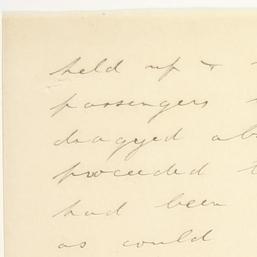 held up &
passengers
dragged ab
proceeded t
had been
as could